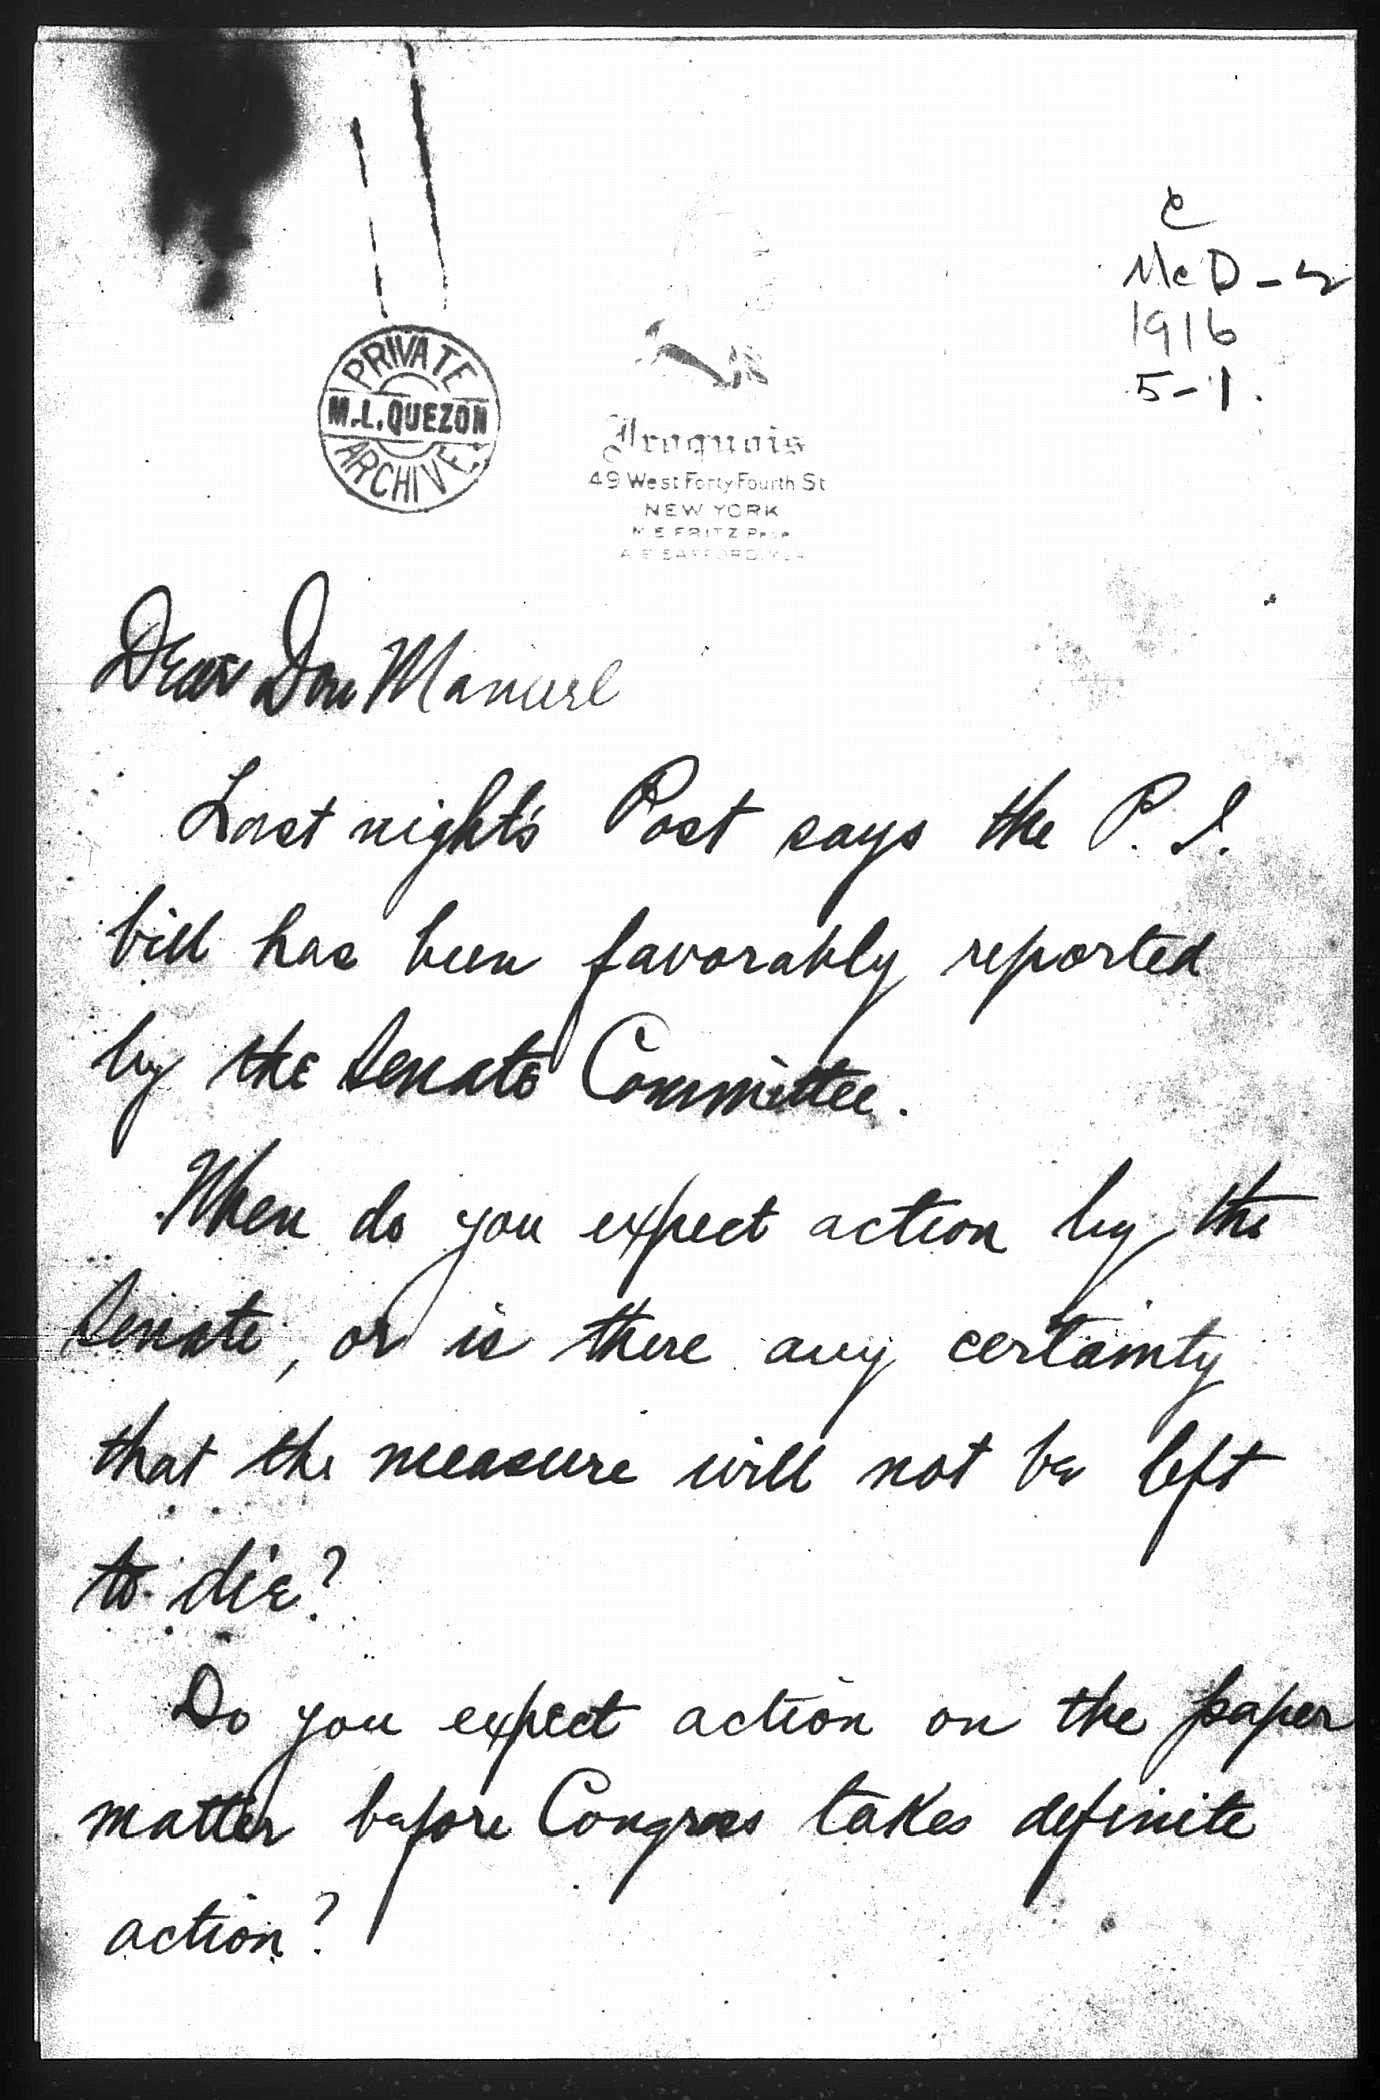 C
McD-
1916
5-1.
PRIVATE
M.L.QUEZON
ARCHIVE
Iroquois
49 West Forty Fourth St
NEW YORK
M E FRITZ Prop
A E SAFFORD
Dear Don Manuel
Last night's Post says the P. I.
bill has been favorably reported
by the Senate Committee.
When do you expect action by the
Senate, or is there any certainty
that the measure will not be left
to die?
Do you expect action on the paper
matter before Congress takes definite
action?